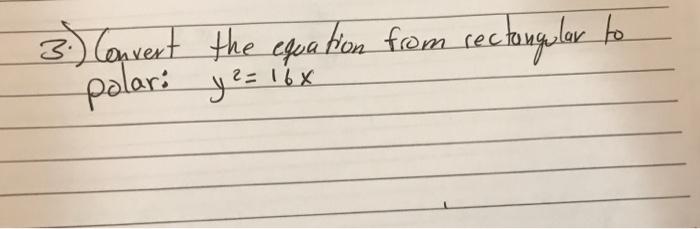 3.) Convert the equation from rectangular to
polar: y²= 16x